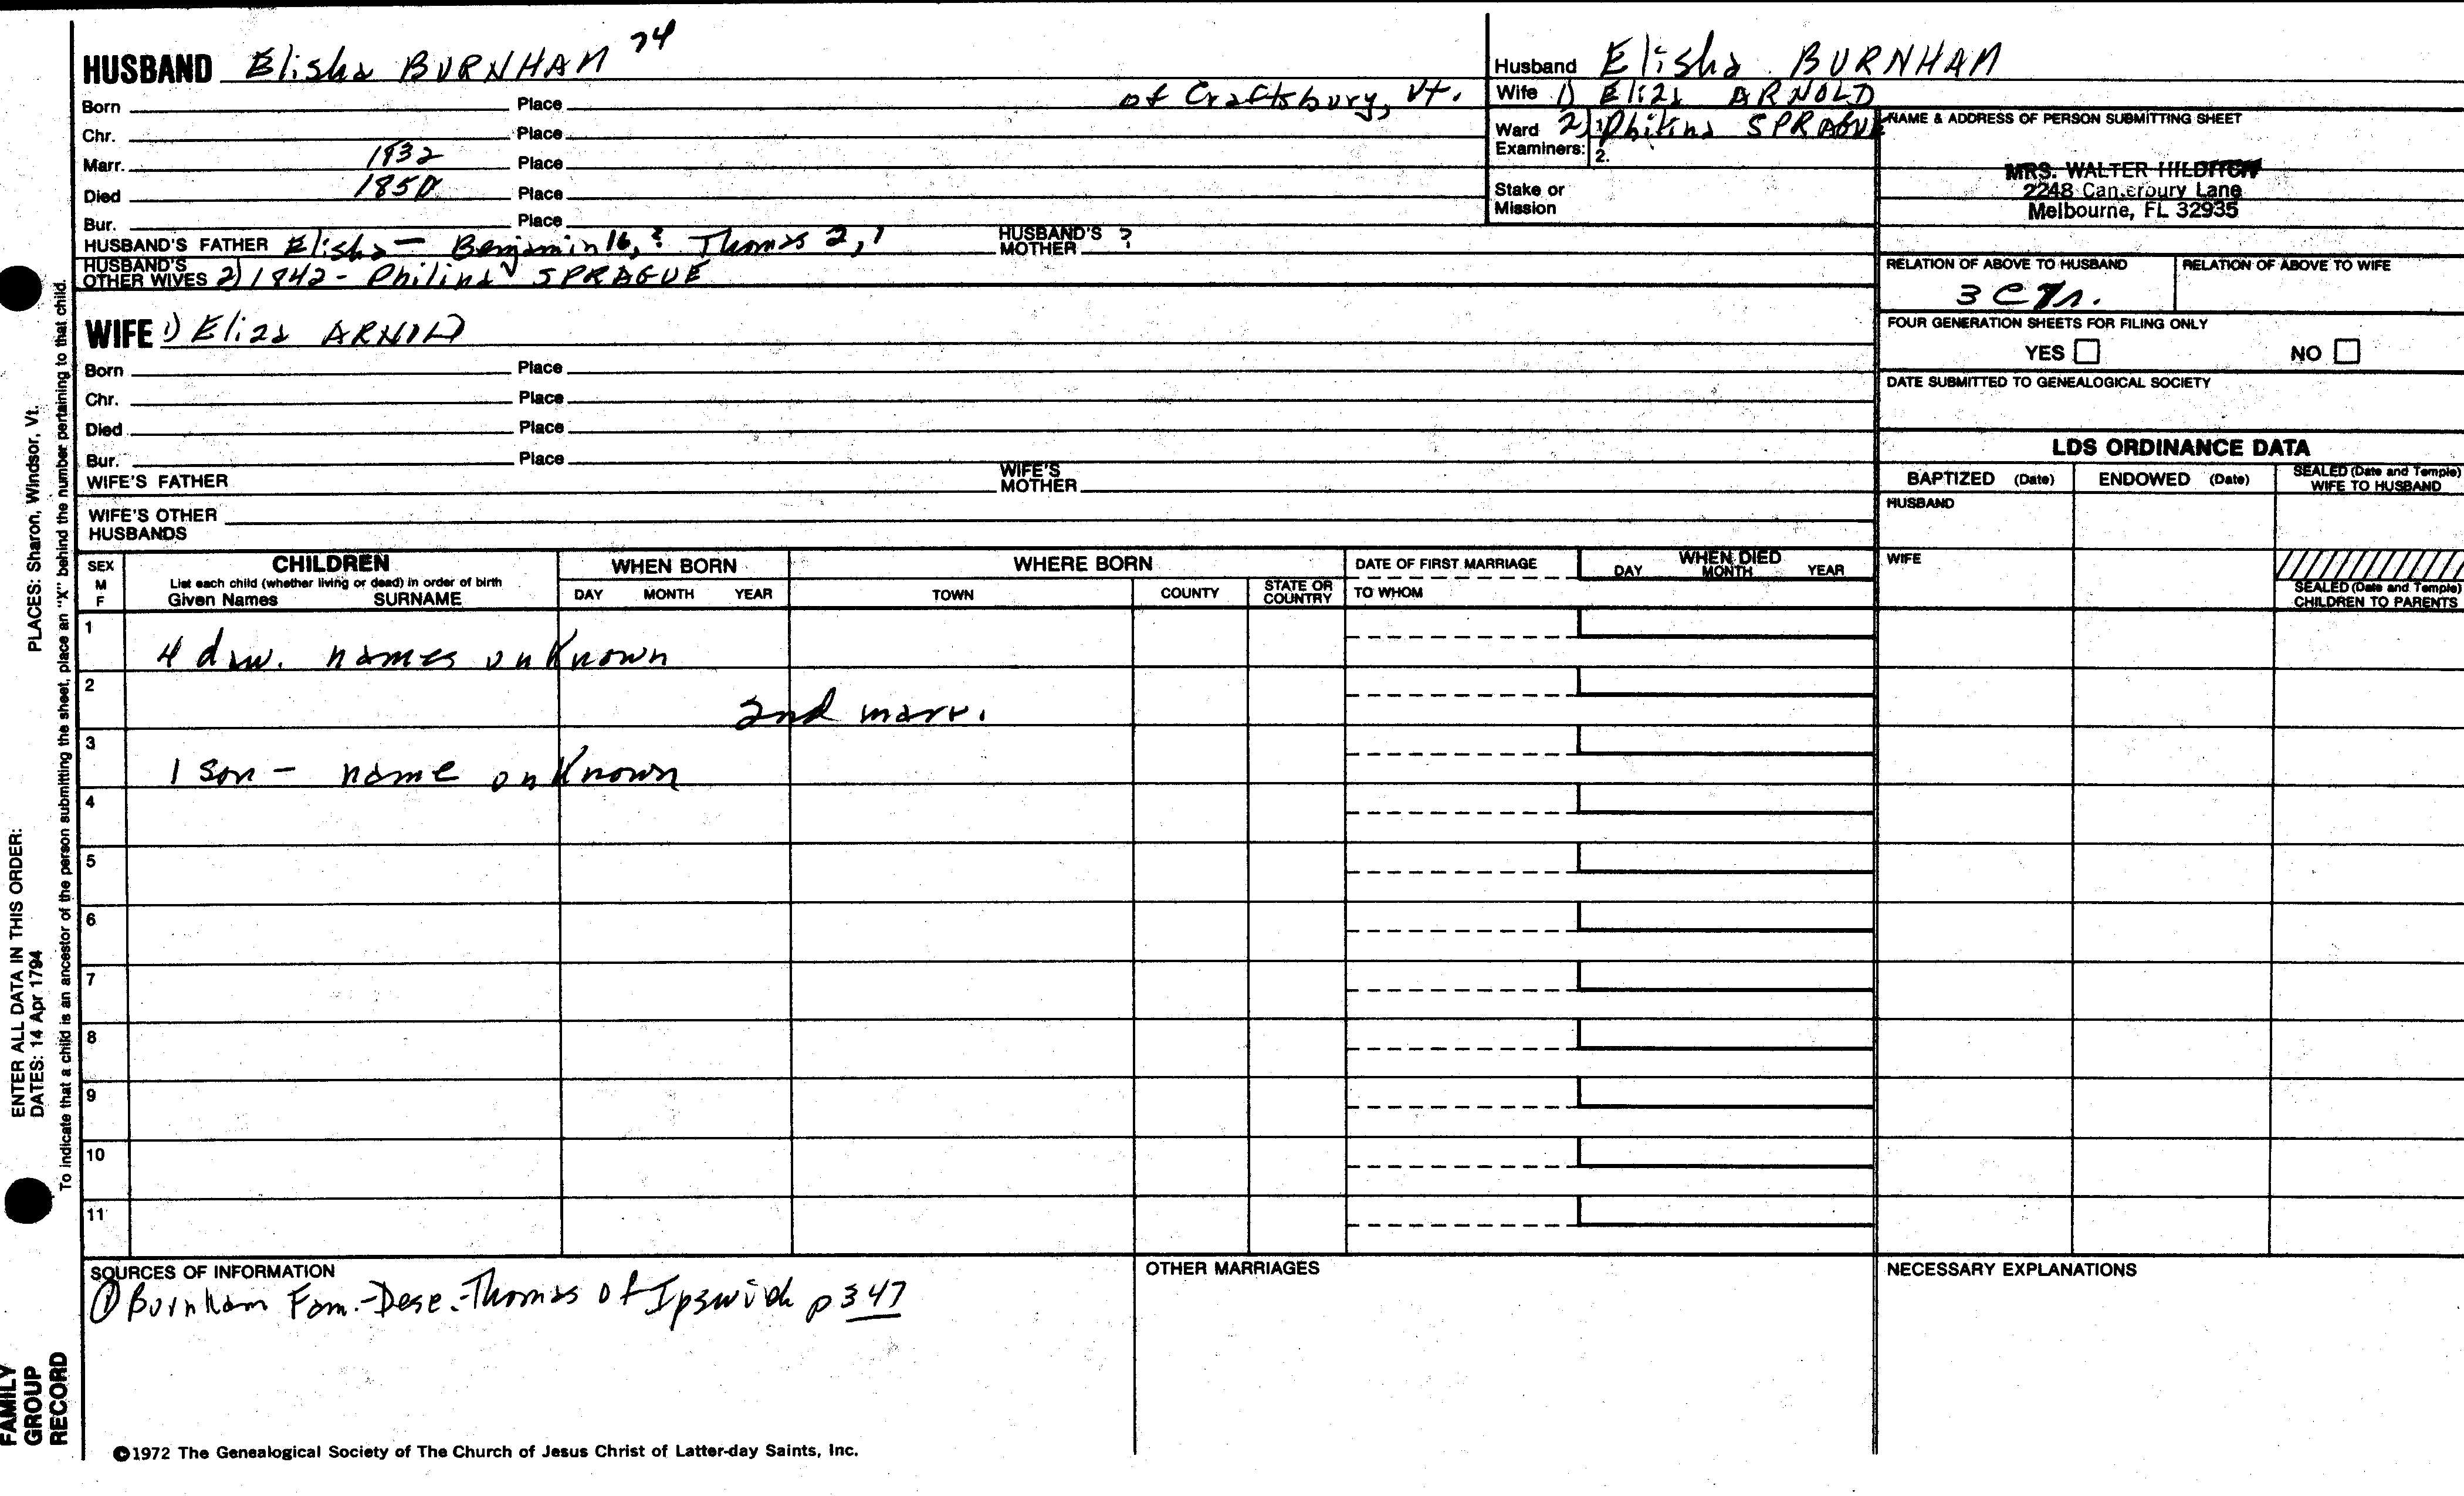 HUSBAND Elisha BURNHAM 74
Born Place of Craftsbury, Vt.
Chr. Place
Marr. 1832 Place
Died 1850 Place
Bur. Place
HUSBAND'S FATHER Elisha - Benjamin 16, ? Thomas 2, 1 HUSBAND'S MOTHER ?
HUSBAND'S OTHER WIVES 2) 1842 - Philina SPRAGUE
WIFE 1) Eliza ARNOLD
Born Place
Chr. Place
Died Place
Bur. Place
WIFE'S FATHER WIFE'S MOTHER
WIFE'S OTHER HUSBANDS
Husband Elisha BURNHAM
Wife 1) Eliza ARNOLD
Ward 2) Philina SPRAGUE
Examiners: 1.
2.
Stake or Mission
NAME & ADDRESS OF PERSON SUBMITTING SHEET
MRS. WALTER HILDITCH
2248 Canterbury Lane
Melbourne, FL 32935
RELATION OF ABOVE TO HUSBAND RELATION OF ABOVE TO WIFE
FOUR GENERATION SHEETS FOR FILING ONLY
YES NO
DATE SUBMITTED TO GENEALOGICAL SOCIETY
LDS ORDINANCE DATA
BAPTIZED (Date) ENDOWED (Date) SEALED (Date and Temple) WIFE TO HUSBAND
HUSBAND
WIFE
SEALED (Date and Temple) CHILDREN TO PARENTS
SEX M F
CHILDREN
List each child (whether living or dead) in order of birth
Given Names SURNAME
WHEN BORN
DAY MONTH YEAR
WHERE BORN
TOWN COUNTY STATE OR COUNTRY
DATE OF FIRST MARRIAGE
TO WHOM
WHEN DIED
DAY MONTH YEAR
1
4 daw. names unknown
2
2nd marr.
3
1 son - name unknown
4
5
6
7
8
9
10
11
SOURCES OF INFORMATION
① Burnham Fam.-Desc.-Thomas of Ipswich p 347
OTHER MARRIAGES
NECESSARY EXPLANATIONS
©1972 The Genealogical Society of The Church of Jesus Christ of Latter-day Saints, Inc.
FAMILY GROUP RECORD
ENTER ALL DATA IN THIS ORDER:
DATES: 14 Apr 1794
PLACES: Sharon, Windsor, Vt.
To indicate that a child is an ancestor of the person submitting the sheet, place an "X" behind the number pertaining to that child.